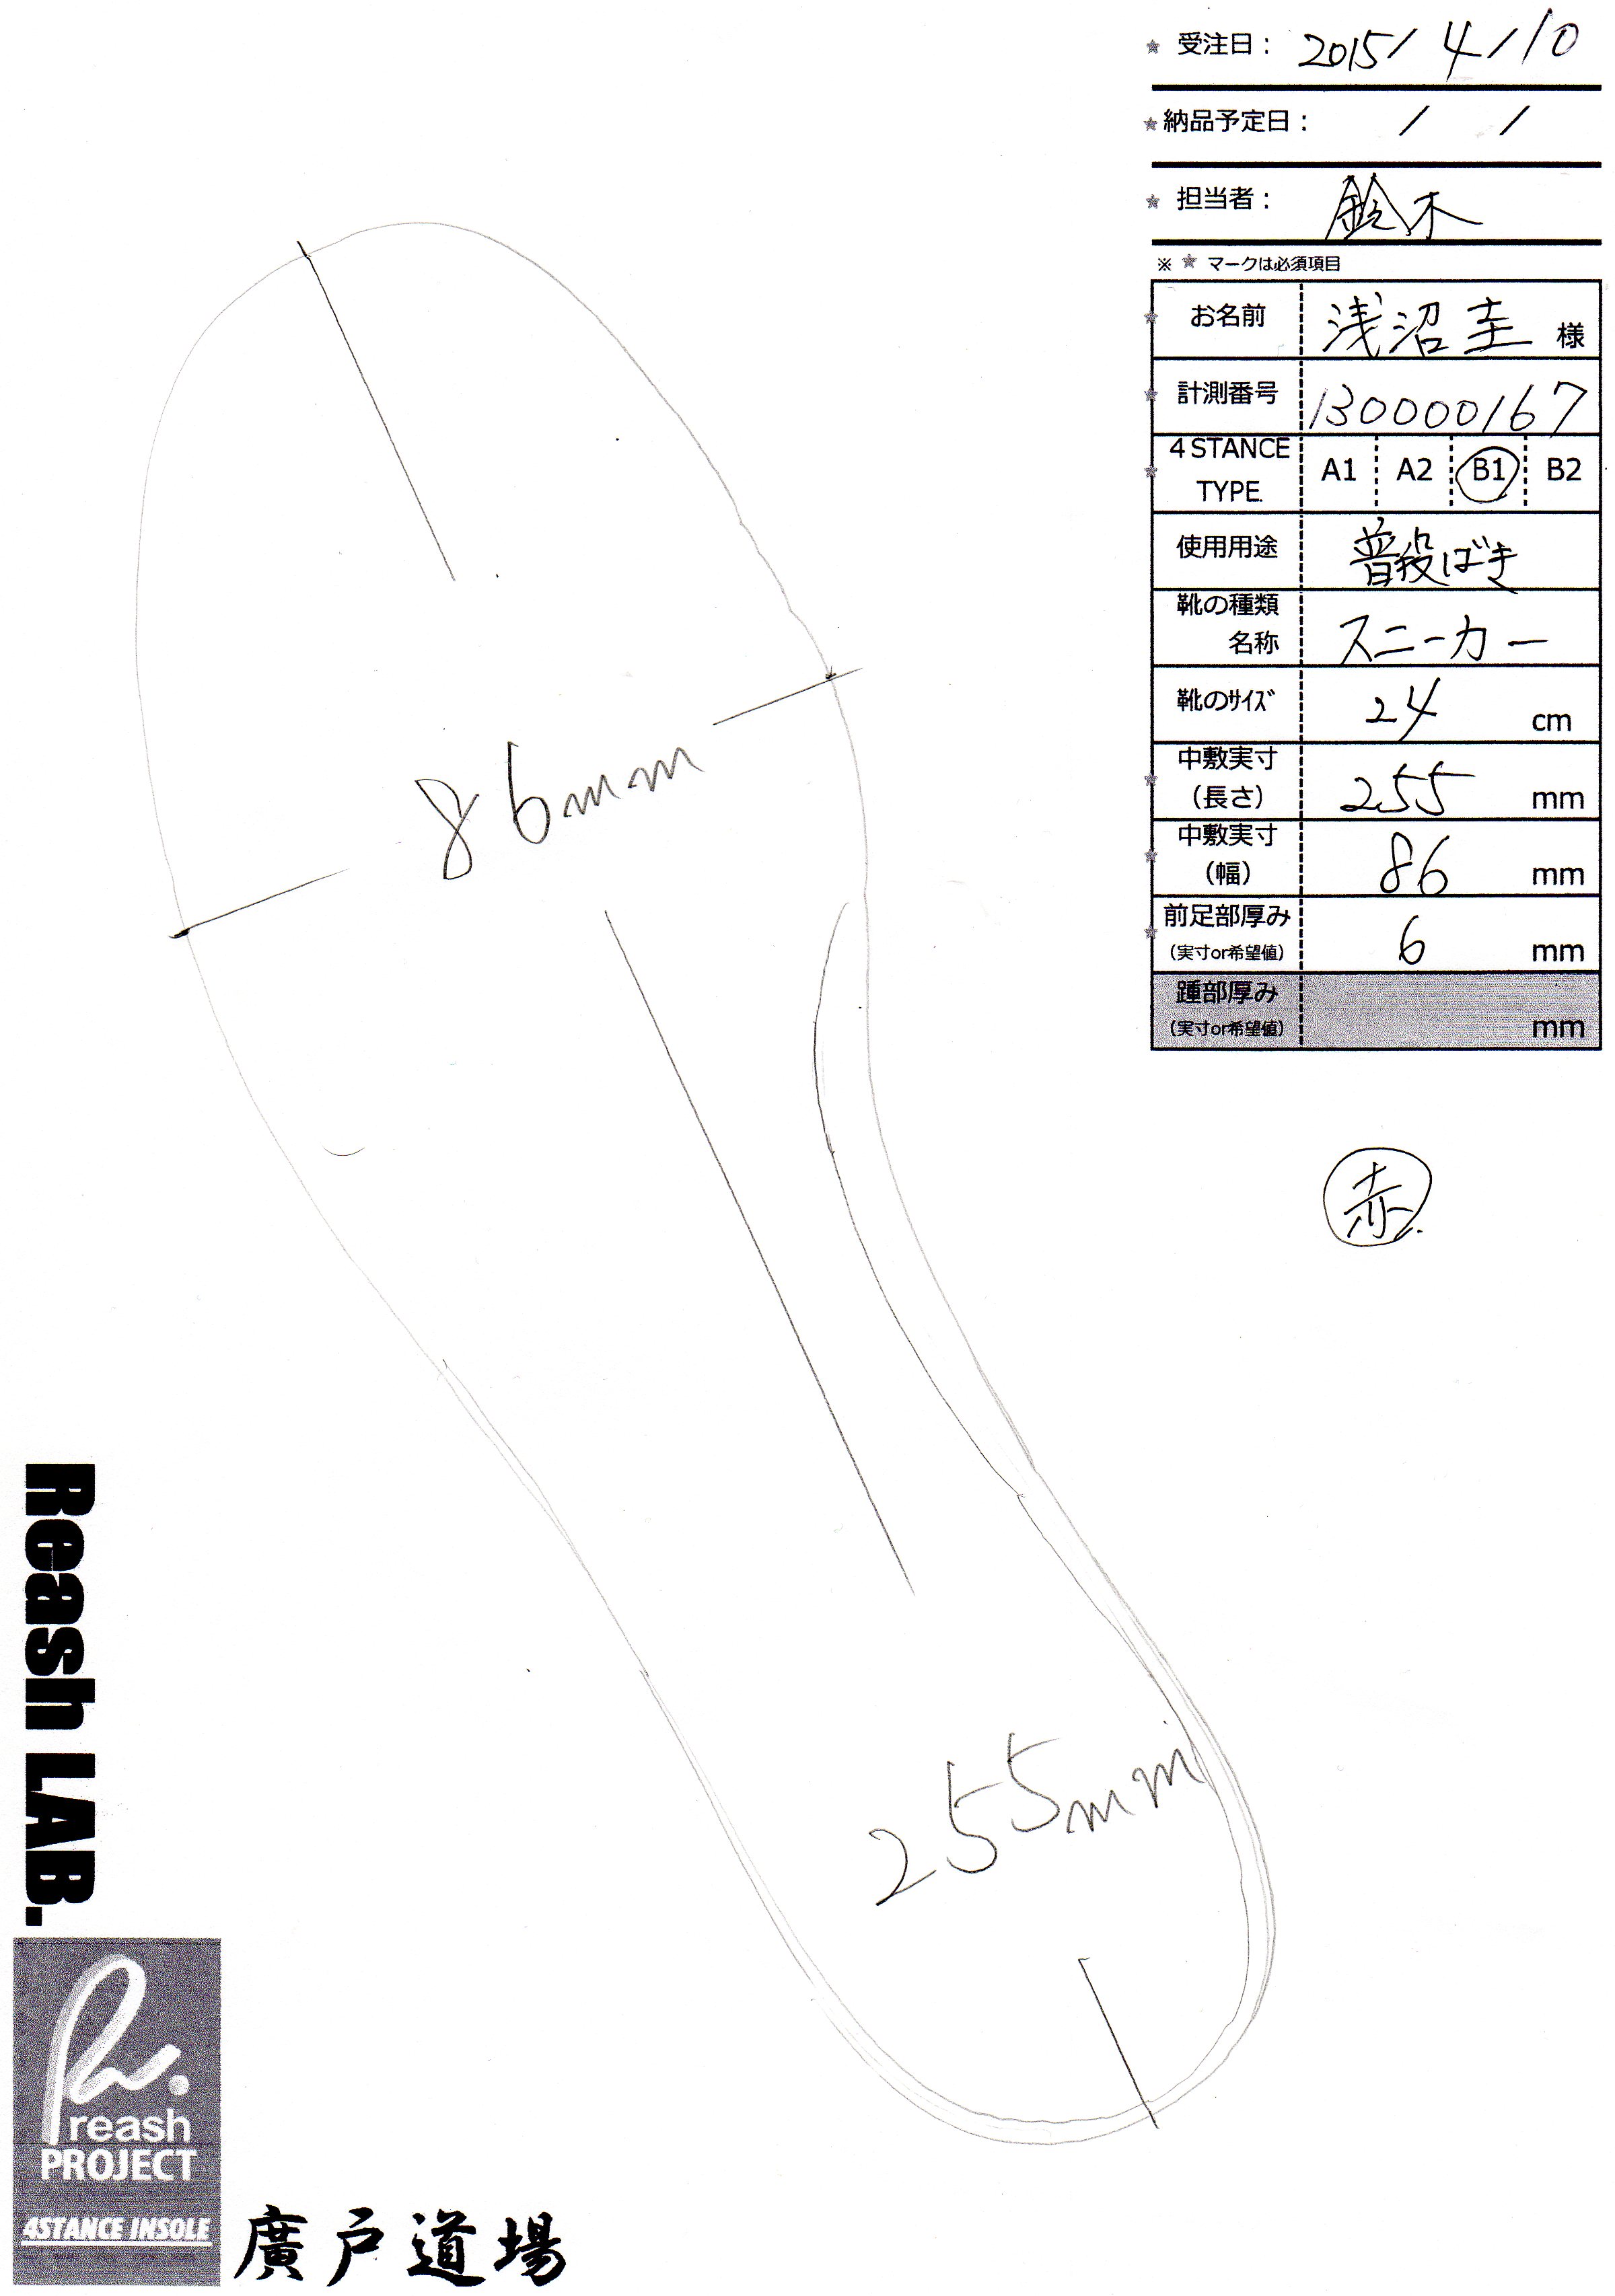 ★ 受注日： 2015/ 4/10
★ 納品予定日： / /
★ 担当者： 鈴木
※ ★ マークは必須項目
★ お名前 浅沼圭 様
★ 計測番号 130000167
★ 4STANCE TYPE. A1 A2 B1 B2
使用用途 普段ばき
靴の種類
名称 スニーカー
靴のｻｲｽﾞ 24 cm
★ 中敷実寸
（長さ） 255 mm
★ 中敷実寸
（幅） 86 mm
★ 前足部厚み
（実寸or希望値） 6 mm
踵部厚み
（実寸or希望値） mm
赤
86mm
255mm
Reash LAB.
R.
reash
PROJECT
4STANCE INSOLE
廣戸道場